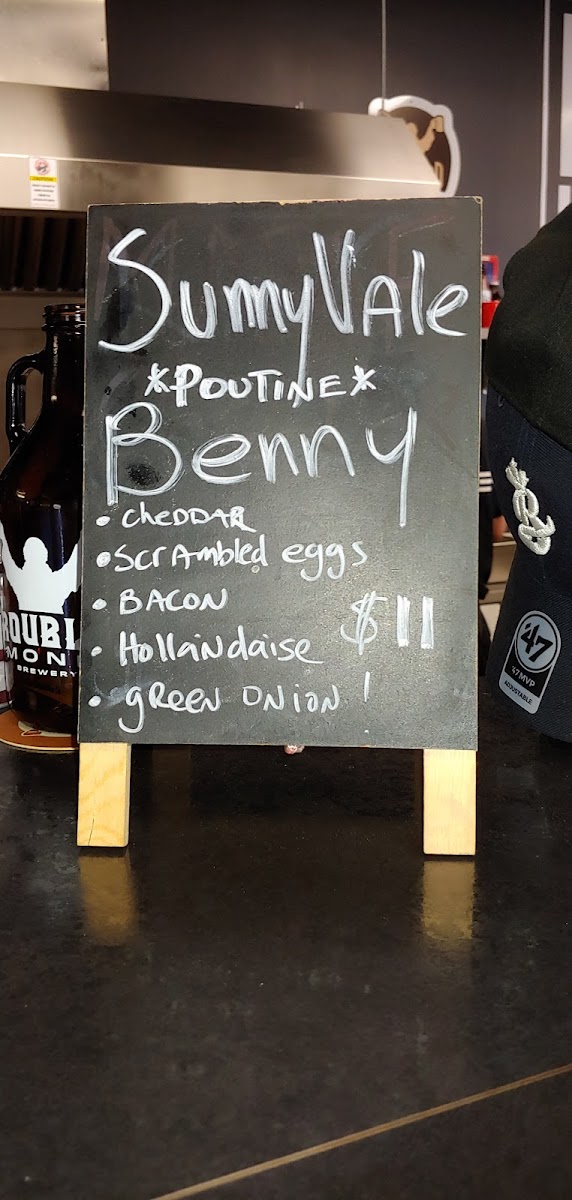 SunnyVAle
*POUTINE*
Benny
• CheDDAR
• ScrAmbled eggs
• BACON
• HollaNdaise
$11
• gReeN ONioN !
OUBL
MON
BREWERY
'47
'47 MVP
ADJUSTABLE